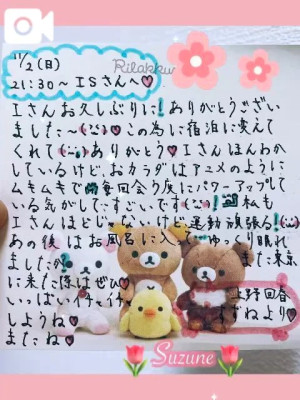 11/2(日)
21:30〜ISさんへ♡
Rilakku
Iさんお久しぶりに!ありがとうござい
ました〜(¨)♡この為に宿泊に変えて
くれて(¨)ありがとう♡Iさんほんわか
しているけど、おカラダはアニメのように
ムキムキで毎回会う度にパワーアップして
いる気がしてすごいです(¨)!私も
Iさんほどじゃないけど運動頑張る!(¨)
あの後はお風呂に入ってゆっくり眠れ
ましたか?また東京
に来た際はぜひ♡
いっぱいイチャイチャ
しようね♡
またね♡
上野回春
すずねより♡
Suzune